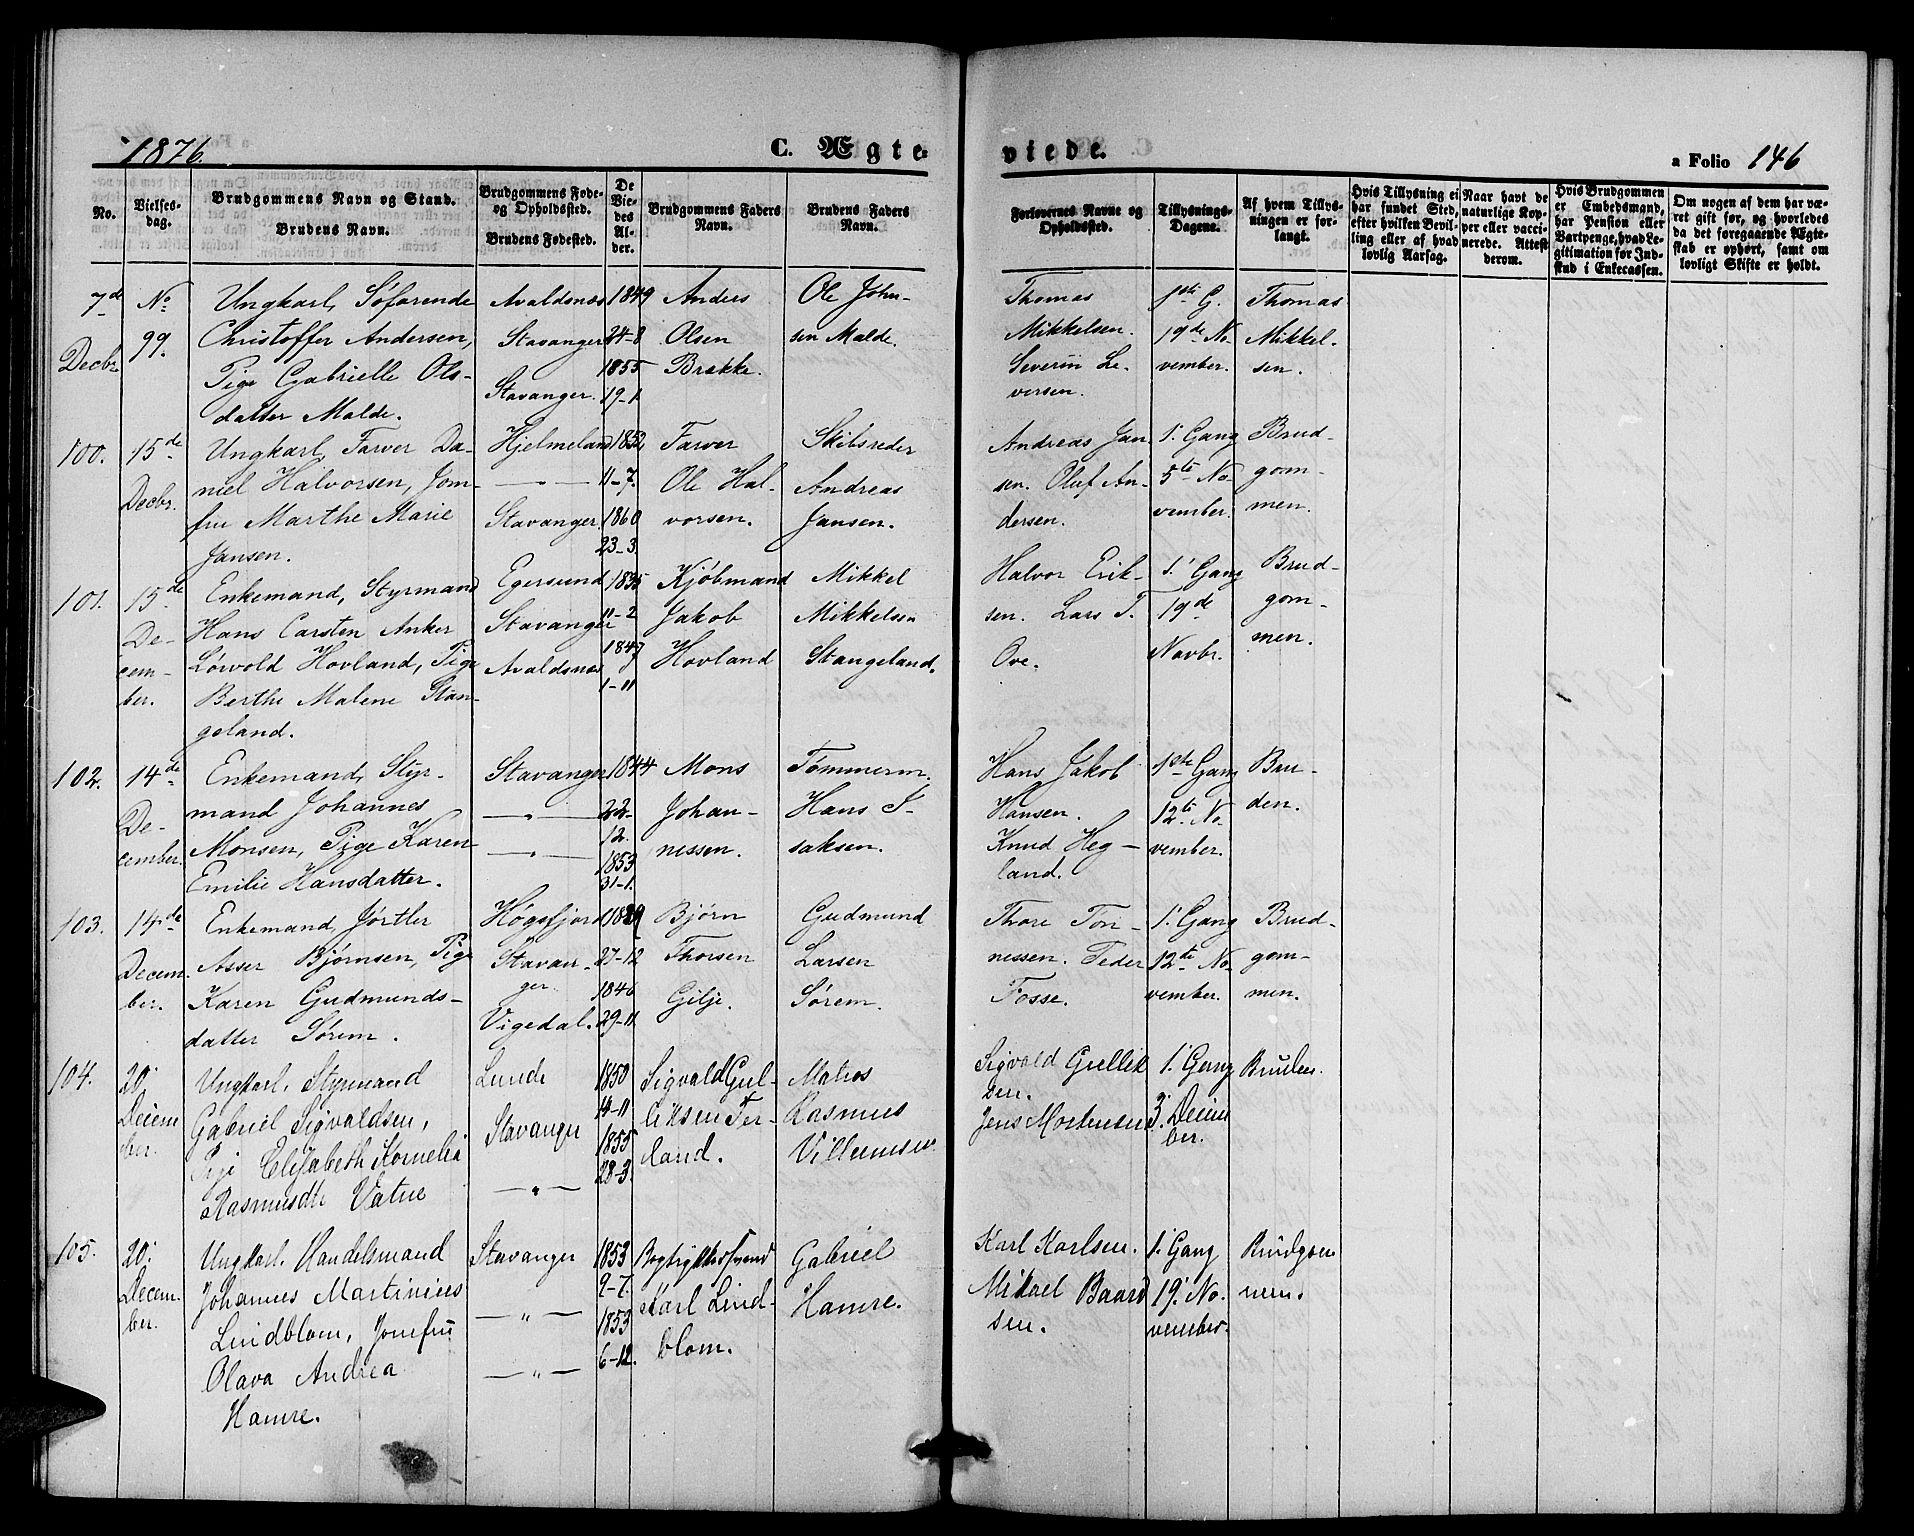 1876.
C. Ægte
viede.
a Folio 146
No.
Vielses-
dag.
Brudgommens Navn og Stand.
Brudens Navn.
Brudgommens Føde-
og Opholdssted.
Brudens Fødested.
De
Vie-
des
Al-
der.
Brudgommens Faders
Navn.
Brudens Faders
Navn.
Forlovernes Navne og
Opholdssted.
Tillysnings-
Dagene.
Af hvem Tillys-
ningen er for-
langt.
Hvis Tillysning ei
har fundet Sted,
efter hvilken Bevil-
ling eller af hvad
lovlig Aarsag.
Naar havt de
naturlige Kop-
per eller vacci-
nerede. Attest
derom.
Hvis Brudgommen
er Embedsmand,
har Pension eller
Vartpenge, hvad Le-
gitimation for Ind-
skud i Enkecassen.
Om nogen af dem har væ-
ret gift før, og hvorledes
da det foregaaende Ægte-
skab er ophørt, samt om
lovligt Skifte er holdt.
7de
Decbr.
No
99.
Ungkarl, Søfarende
Christoffer Andersen,
Pige Gabrielle Ols-
datter Malde.
Avaldsnes
Stavanger
Stavanger.
1849
24-8
1855
19-1.
Anders
Olsen
Brække.
Ole John-
sen Malde.
Thomas
Mikkelsen.
Severin Le-
versen.
1ste G.
19de No-
vember.
Thomas
Mikkel-
sen.
100.
15de
Decbr.
Ungkarl, Farver Da-
niel Halvorsen, Jom-
fru Marthe Marie
Jansen.
Hjelmeland
— „ —
Stavanger.
1852
11-7.
1860
23-3.
Farver
Ole Hal-
vorsen.
Skibsreder
Andreas
Jansen.
Andreas Jan
sen. Oluf An-
dersen.
1. Gang
5te No-
vember.
Brud-
gom-
men.
101.
15de
De-
cem-
ber.
Enkemand, Styrmand
Hans Carsten Anker
Lørvold Hovland, Pige
Berthe Malene Stan-
geland.
Egersund
Stavanger
Avaldsnes
1835
11-2
1847
1-11
Kjøbmand
Jakob
Hovland
Mikkel
Mikkelsen
Stangeland.
Halvor Erik-
sen. Lars T.
Ove.
1. Gang
19de
Novbr.
Brud-
gom-
men.
102.
14de
De-
cember.
Enkemand, Styr-
mand Johannes
Monsen, Pige Karen
Emilie Hansdatter.
Stavanger
— „ —
— „ —
1844
22-
12.
1853
31-1.
Mons
Johan-
nessen.
Tømmerm.
Hans I-
saksen.
Hans Jakob
Hansen.
Knud Heg-
land.
1ste Gang
12te No-
vember.
Bru-
den.
103.
14de
Decem-
ber.
Enkemand, Jørtler
Asser Bjørnsen, Pige
Karen Gudmunds-
datter Sørem.
Høgsfjord
Stavan-
ger
Vigedal.
27-12
1846
29-11
Bjørn
Thorsen
Gilje.
Gudmund
Larsen
Sørem.
Thore Tön-
nessen. Peder
Fosse.
1. Gang
12te No-
vember.
Brud-
gom-
men.
104.
20.
Decem
ber.
Ungkarl. Styrmand
Gabriel Sigvaldsen,
Pige Elisabeth Kornelia
Rasmusdtr Vatne
Lunde
Stavanger
— „ —
1850
14-11
1855
28-3.
Sigvald Gul-
liksen Fer-
land.
Matros
Rasmus
Villumsen.
Sigvald Gullik
sen.
Jens Mortensen
1. Gang
3. Decem
ber.
Bruden.
105.
20.
Decem-
ber.
Ungkarl. Handelsmand
Johannes Martinius
Lindblom, Jomfru
Olava Andrea
Hamre.
Stavanger
— „ —
— „ —
1853
9-7.
1853
6-12.
Bogtrykkersvend
Karl Lind-
blom.
Gabriel
Hamre.
Karl Karlsen.
Mikael Baard
sen.
1. Gang
19. No-
vember.
Brudgom
men.